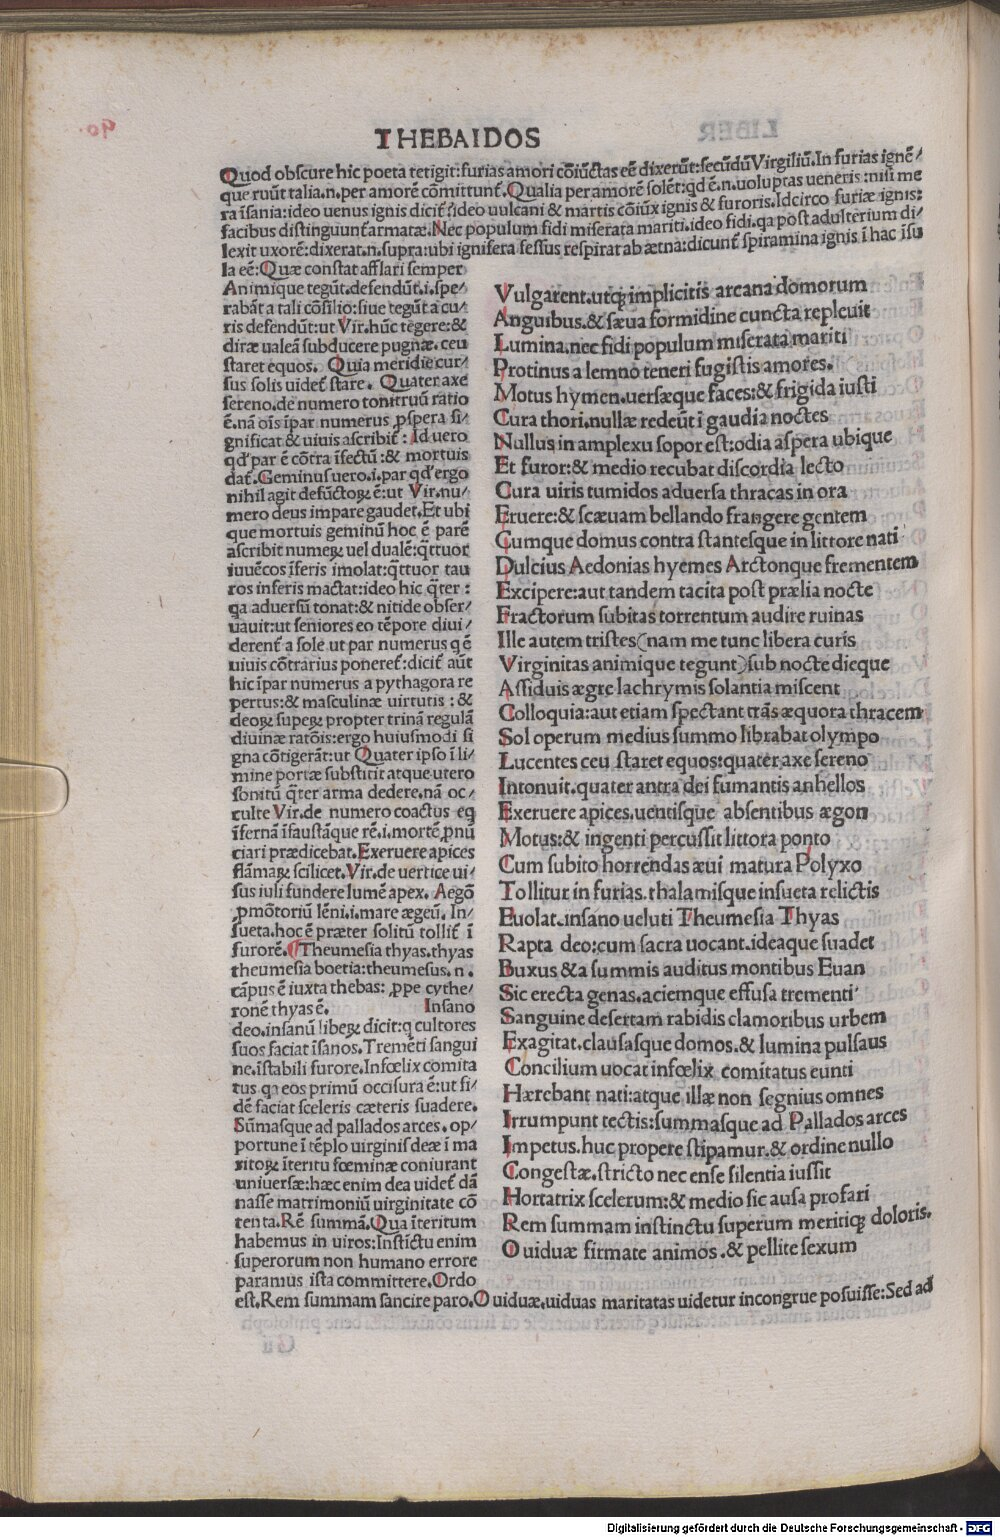 THEBAIDOS
Quod obscure hic poeta tetigit:furias amori cōiūctas eē dixerūt:secūdū Virgiliū.In furias ignē/
que ruūt talia.n.per amorē cōmittunt̃.Qualia per amorē solēt:qd̄ ē.n.uoluptas ueneris:nisi me
ra īsania:ideo uenus ignis dicit̃:ideo uulcani & martis cōiūx ignis & furoris.Idcirco furiæ ignis:
facibus distinguunt̃ armatæ.Nec populum fidi miserata mariti.ideo fidi.qa post adulterium di/
lexit uxorē:dixerat.n.supra:ubi ignifera fessus respirat ab ætna:dicunt̃ spiramina ignis ī hac īsu
la eē:Quæ constat afflari semper
Animique tegūt.defendūt.i.spe/
rabāt a tali cōsilio:siue tegūt a cu/
ris defendūt:ut Vir.hūc tegere:&
diræ ualeā subducere pugnæ.ceu
staret equos. Quia meridie cur/
sus solis uidet̃ stare. Quater axe
sereno.de numero tonitruū ratio
ē.nā oīs īpar numerus ꝓspera si/
gnificat & uiuis ascribit̃: Id uero
qd̄ par ē cōtra īfectū:& mortuis
dat̃.Geminus uero.i.par qd̄ ergo
nihil agit defūctoꝝ ē:ut Vir.nu/
mero deus impare gaudet.Et ubi
que mortuis geminū hoc ē parē
ascribit numeꝝ uel dualē:q̄ttuor
iuuēcos īferis imolat:q̄ttuor tau
ros inferis mactat:ideo hic q̄ter:
qa aduersū tonat:& nitide obser/
uauit:ut seniores eo tēpore diui/
derent̃ a sole.ut par numerus q ē
uiuis cōtrarius poneret̃:dicit̃ aūt
hic īpar numerus a pythagora re
pertus:& masculinæ uirtutis:&
deoꝝ supeꝝ propter trinā regulā
diuinæ ratōis:ergo huiusmodi si
gna cōtigerāt:ut Quater ipso ī li/
mine portæ substitit atque utero
sonitū q̄ter arma dedere.nā oc/
culte Vir.de numero coactus eq
īfernā īfaustāque rē.i.mortē ꝓnū
ciari prædicebat.Exeruere apices
flāmaꝝ scilicet.Vir.de uertice ui/
sus iusi fundere lumē apex. Aegō
ꝓmōtoriū lēni.i.mare ægeū. In/
sueta.hoc ē præter solitū tollit̃ ī
furorē.¶Theumesia thyas.thyas
theumesia boetia:theumesus.n.
cāpus ē iuxta thebas: ꝓpe cythe/
ronē thyas ē. Insano
deo.insanū libeꝝ dicit:q cultores
suos faciat īsanos.Tremēti sangui
ne.īstabili furore.Infœlix comita
tus.qa eos primū occisura ē:ut fi/
dē faciat sceleris cæteris suadere.
Sūmasque ad pallados arces.op/
portune ī tēplo uirginis deæ ī ma
ritoꝝ īteritu fœminæ coniurant
uniuersæ:hæc enim dea uidet̃ dā
nasse matrimoniū uirginitate cō
tenta.Rē summā.Qua īteritum
habemus in uiros:Instīctu enim
superorum non humano errore
paramus ista committere.Ordo
est.Rem summam sancire paro.O uiduæ.uiduas maritatas uidetur incongrue posuisse:Sed ad
Vulgarent.utqꝫ implicitis arcana domorum
Anguibus.& sæua formidine cuncta repleuit
Lumina.nec fidi populum miserata mariti
Protinus a lemno teneri fugistis amores.
Motus hymen.uersæque faces:& frigida iusti
Cura thori.nullæ redeūt ī gaudia noctes
Nullus in amplexu sopor est:odia aspera ubique
Et furor:& medio recubat discordia lecto
Cura uiris tumidos aduersa thracas in ora
Eruere:& scæuam bellando frangere gentem
Cumque domus contra stantesque in littore nati
Dulcius Aedonias hyemes Arctonque frementem
Excipere:aut tandem tacita post prælia nocte
Fractorum subitas torrentum audire ruinas
Ille autem tristes(nam me tunc libera curis
Virginitas animique tegunt)sub nocte dieque
Assiduis ægre lachrymis solantia miscent
Colloquia:aut etiam spectant trās æquora thracem
Sol operum medius summo librabat olympo
Lucentes ceu staret equos:quater axe sereno
Intonuit.quater antra dei fumantis anhellos
Exeruere apices.uentisque absentibus ægon
Motus:& ingenti percussit littora ponto
Cum subito horrendas æui matura Polyxo
Tollitur in furias.thalamisque insueta relictis
Euolat.insano ueluti Theumesia Thyas
Rapta deo:cum sacra uocant.ideaque suadet
Buxus & a summis auditus montibus Euan
Sic erecta genas.aciemque effusa trementi
Sanguine desertam rabidis clamoribus urbem
Exagitat.clausasque domos.& lumina pulsaus
Concilium uocat infœlix comitatus eunti
Hærebant nati:atque illæ non segnius omnes
Irrumpunt tectis:summasque ad Pallados arces
Impetus.huc propere stipamur.& ordine nullo
Congestæ.stricto nec ense silentia iussit
Hortatrix scelerum:& medio sic ausa profari
Rem summam instinctu superum meritiqꝫ doloris.
O uiduæ firmate animos.& pellite sexum
Digitalisierung gefördert durch die Deutsche Forschungsgemeinschaft - DFG